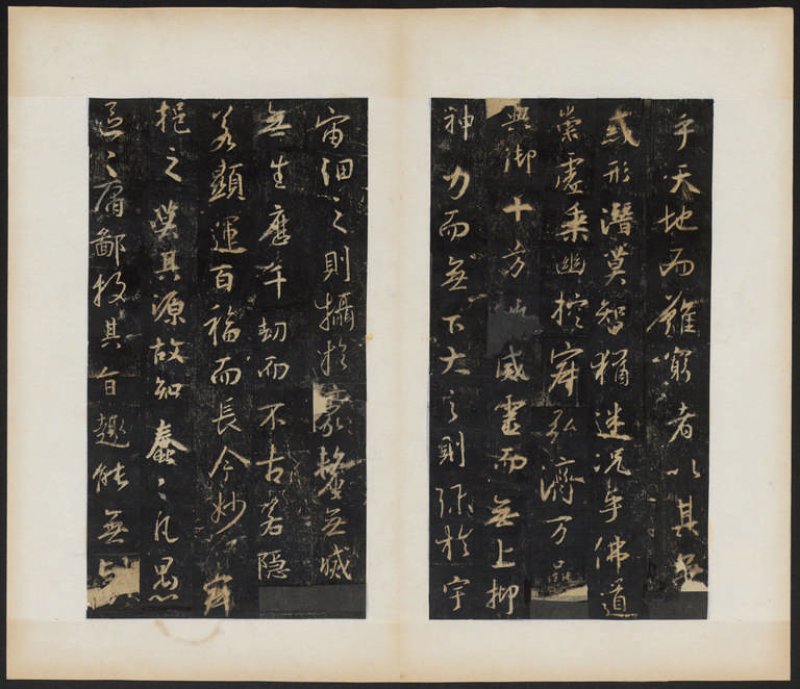 乎天地而難窮者以其無
惑形潛莫智猶迷況乎佛道
崇虛乘幽控寂弘濟万品
典御十方威靈而無上抑
神力而無下大之則弥於宇
宙細之則攝於豪釐無滅
無生歷千劫而不古若隱
若顯運百福而長今妙寂
挹之莫其源故知蠢蠢凡愚
區區庸鄙投其旨趣能無疑